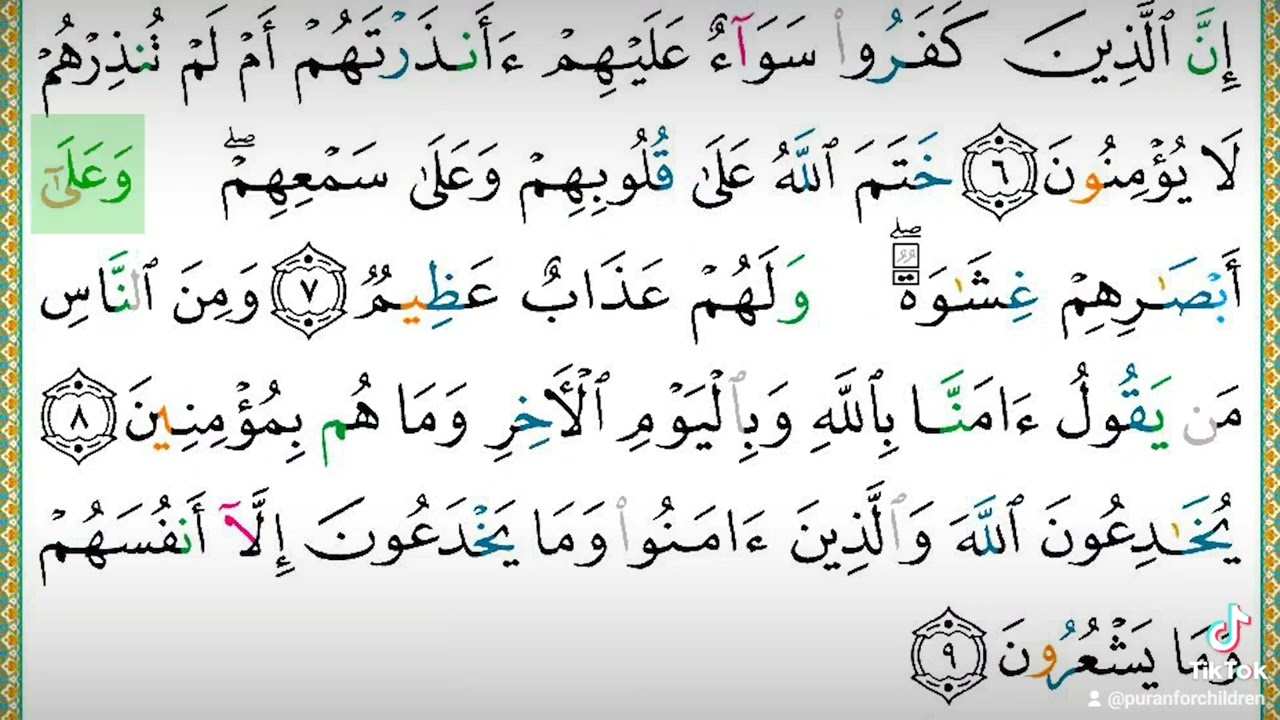 إِنَّ ٱلَّذِينَ كَفَرُوا۟ سَوَآءٌ عَلَيْهِمْ ءَأَنذَرْتَهُمْ أَمْ لَمْ تُنذِرْهُمْ
لَا يُؤْمِنُونَ ٦ خَتَمَ ٱللَّهُ عَلَىٰ قُلُوبِهِمْ وَعَلَىٰ سَمْعِهِمْ ۖ وَعَلَىٰٓ
أَبْصَـٰرِهِمْ غِشَـٰوَةٌ ۖ وَلَهُمْ عَذَابٌ عَظِيمٌ ٧ وَمِنَ ٱلنَّاسِ
مَن يَقُولُ ءَامَنَّا بِٱللَّهِ وَبِٱلْيَوْمِ ٱلْـَٔاخِرِ وَمَا هُم بِمُؤْمِنِينَ ٨
يُخَـٰدِعُونَ ٱللَّهَ وَٱلَّذِينَ ءَامَنُوا۟ وَمَا يَخْدَعُونَ إِلَّآ أَنفُسَهُمْ
وَمَا يَشْعُرُونَ ٩
TikTok
@puranforchildren